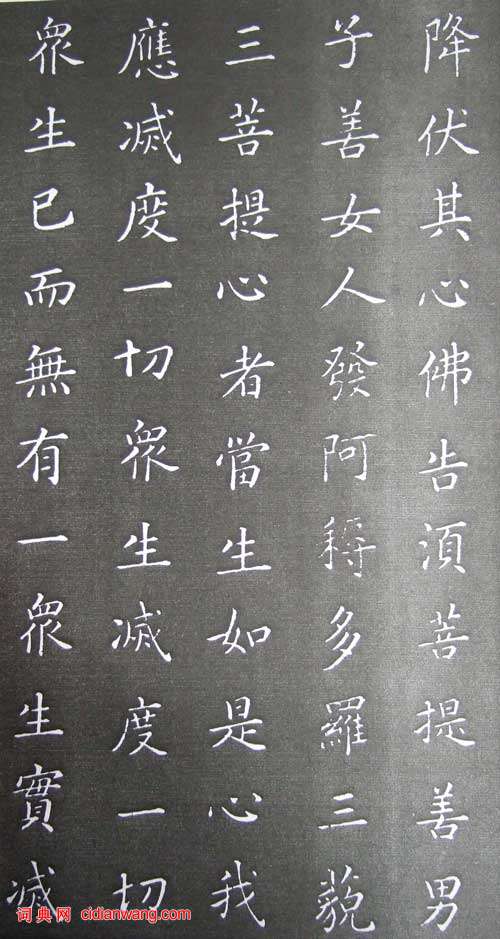 降伏其心佛告須菩提善男
子善女人發阿耨多羅三藐
三菩提心者當生如是心我
應滅度一切眾生滅度一切
眾生已而無有一眾生實滅
词典网 cidianwang.com